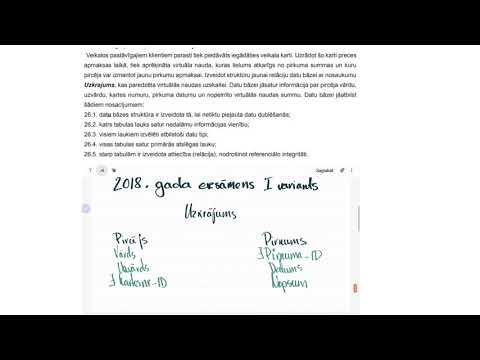 Veikalos pastāvīgajiem klientiem parasti tiek piedāvāts iegādāties veikala karti. Uzrādot šo karti preces
apmaksas laikā, tiek aprēķināta virtuāla nauda, kuras lielums atkarīgs no pirkuma summas un kuru
pircējs var izmantot jaunu pirkumu apmaksai. Izveidot struktūru jaunai relāciju datu bāzei ar nosaukumu
Uzkrajums, kas paredzēta virtuālās naudas uzskaitei. Datu bāzei jāsatur informācija par pircēja vārdu,
uzvārdu, kartes numuru, pirkuma datumu un nopelnīto virtuālās naudas summu. Datu bāzei jāatbilst
šādiem nosacījumiem:
26.1. datu bāzes struktūra ir izveidota tā, lai netiktu pieļauta datu dublēšanās;
26.2. katrs tabulas lauks satur nedalāmu informācijas vienību;
26.3. visiem laukiem izvēlēti atbilstoši datu tipi;
26.4. visas tabulas satur primārās atslēgas lauku;
26.5. starp tabulām ir izveidota attiecība (relācija), nodrošinot referenciālo integritāti.
Saglabāt
2018. gada eksāmens I variants
Uzkrājums
Pircējs Pirkums
Vārds Pirkuma_ID
Uzvārds Datums
Kartesnr_ID Nopsum